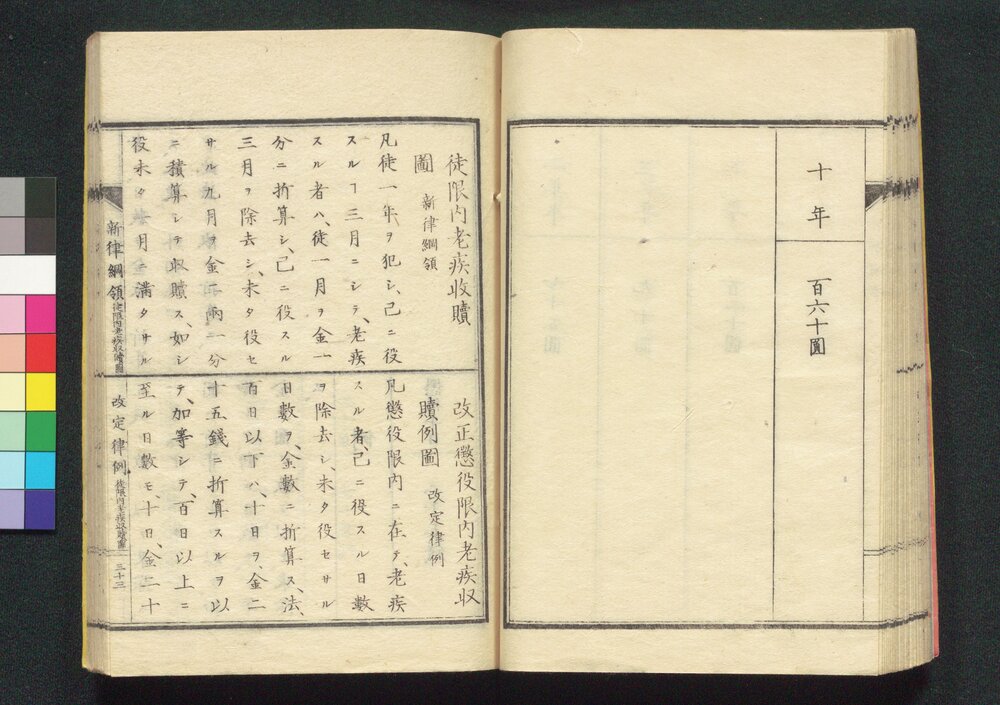 十年
百六十圓
徒限内老疾收贖
圖 新律綱領
凡徒一年ヲ犯シ、己ニ役
スルヿ三月ニシテ、老疾
スル者ハ、徒一月ヲ金一
分ニ折算シ、己ニ役スル
三月ヲ除去シ、未タ役セ
サル九月ヲ金二兩一分
ニ積算シテ收贖ス、如シ
役未タ 月ニ滿タサル
改正懲役限内老疾収
贖例圖 改定律例
凡懲役限内ニ在テ、老疾
スル者、己ニ役スル日數
ヲ除去シ、未タ役セサル
日數ヲ、金數ニ折算ス、法、
百日以下ハ、十日ヲ、金二
十五錢ニ折算スルヲ以
テ、加等シテ、百日以上ニ
至ル日數モ、十日、金二十
新律綱領 徒限内老疾収贖圖
改定律例 徒限内老疾収贖圖
三十三